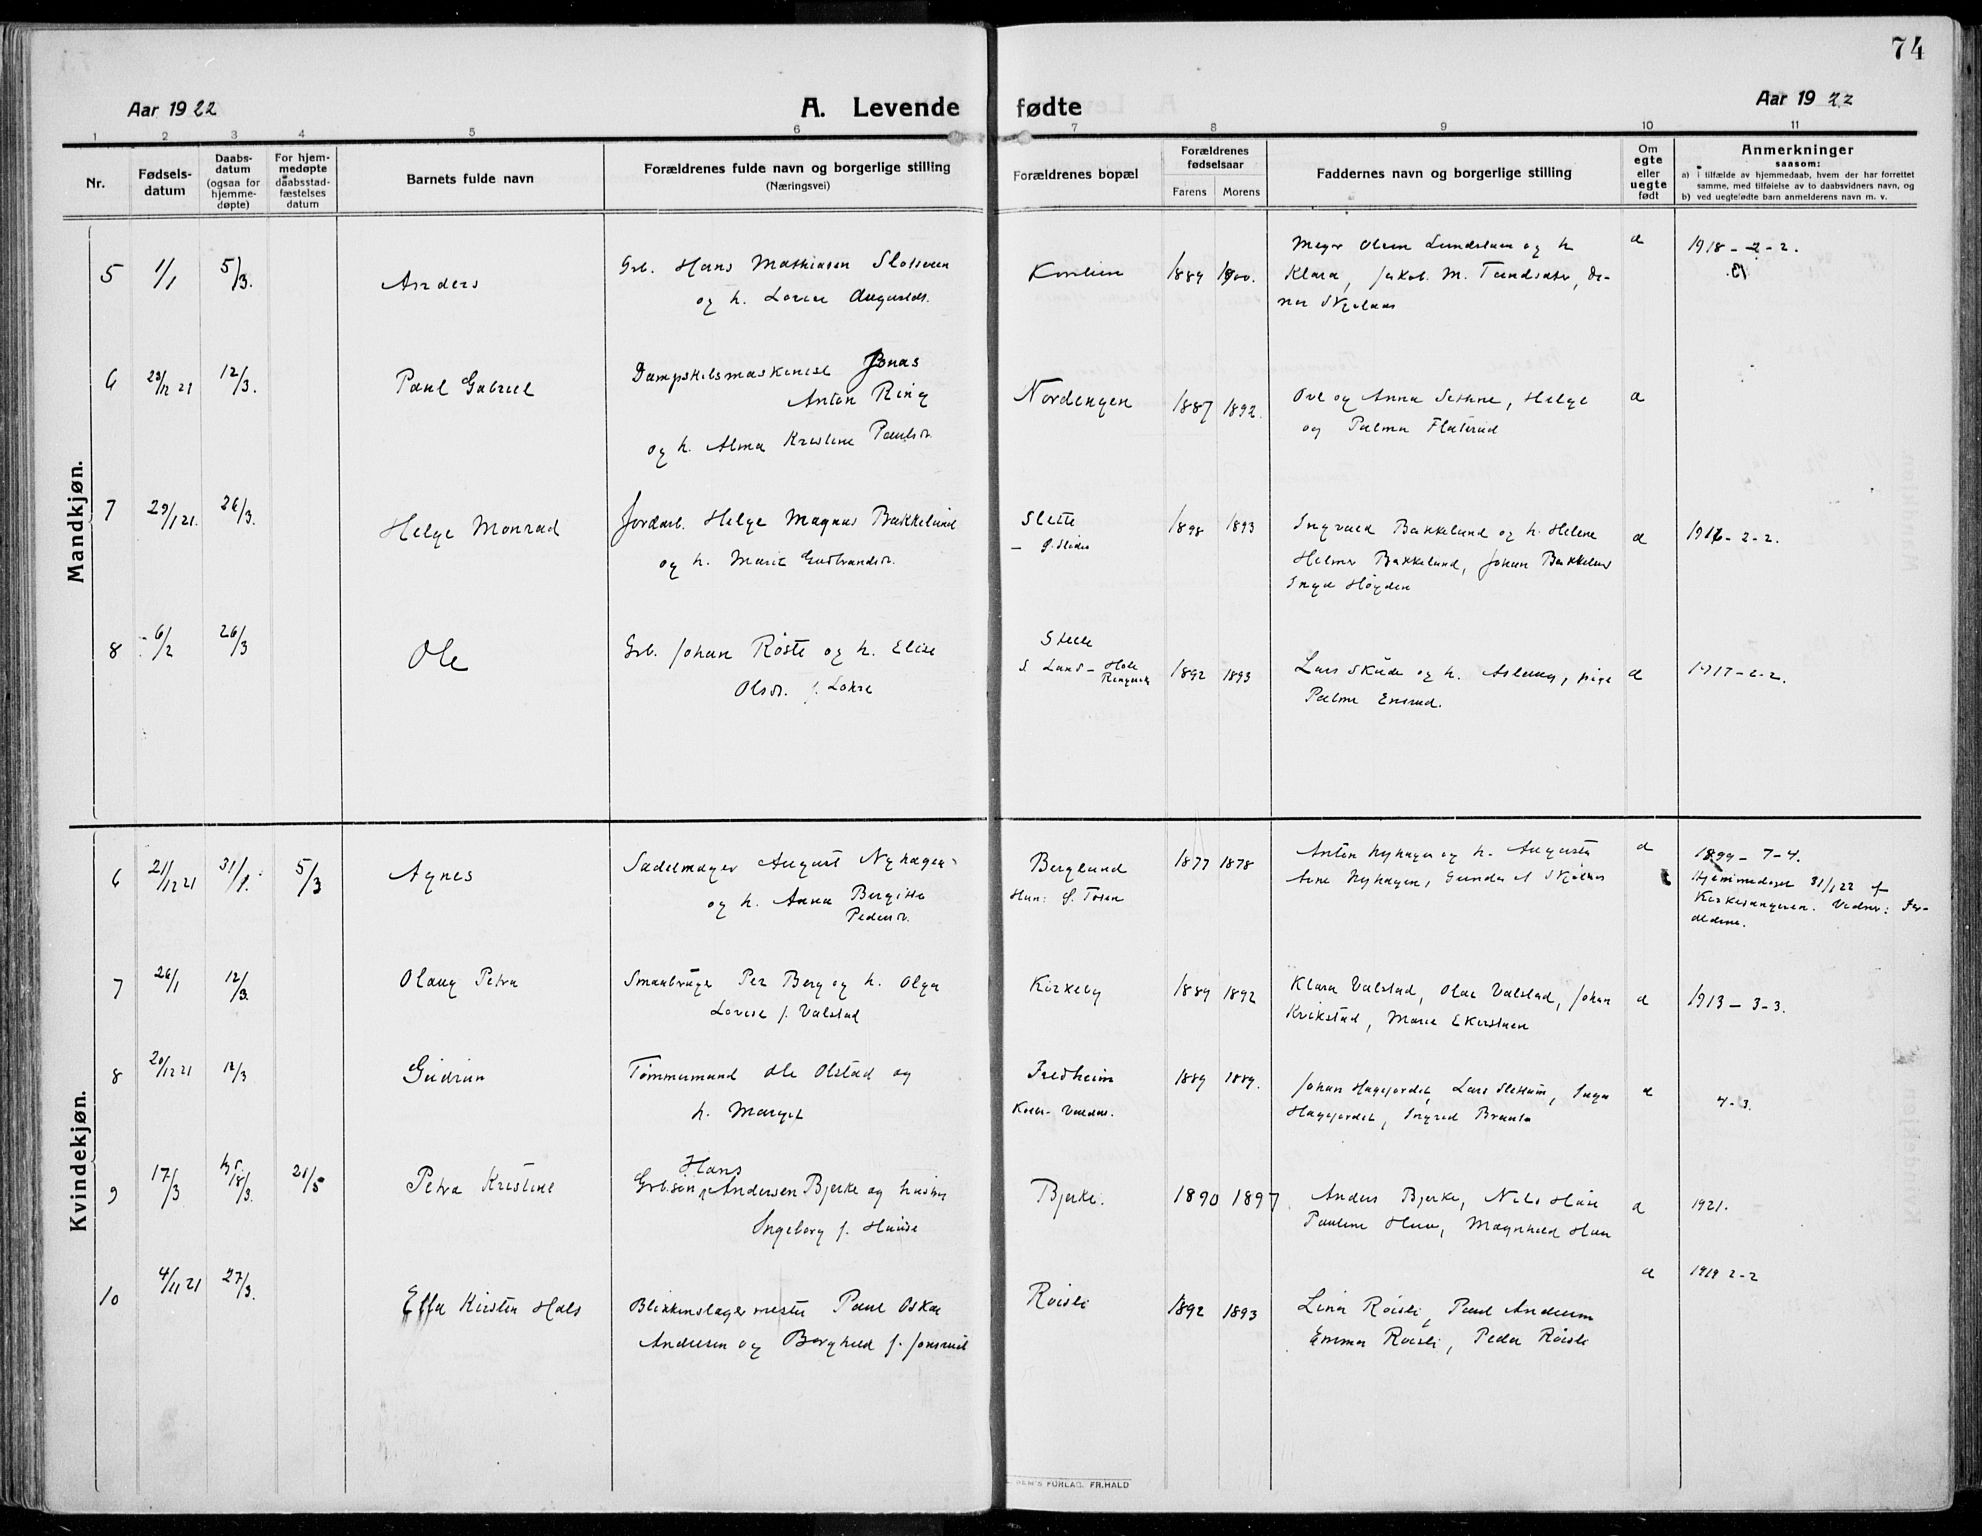 74
Aar 1922
A. Levende fødte
Aar 1922
1 2 3 4 5 6 7 8 9 10 11
Nr.
Fødsels-
datum
Daabs-
datum
(ogsaa for
hjemme-
døpte)
For hjem-
medøpte
daabsstad-
fæstelses
datum
Barnets fulde navn
Forældrenes fulde navn og borgerlige stilling
(Næringsvei)
Forældrenes bopæl
Forældrenes
fødselsaar
Farens Morens
Faddernes navn og borgerlige stilling
Om
egte
eller
uegte
født
Anmerkninger
saasom:
a) i tilfælde av hjemmedaab, hvem der har forrettet
samme, med tilføielse av to daabsvidners navn, og
b) ved uegtefødte barn anmelderens navn m. v.
Mandkjøn.
5 1/1 5/3. Anders
Grb. Hans Mathiasen
og h. Lovise Augustds.
1889 1900.
Meyer Olsen og h
Klara, Jakob M.
a
1918 - 2 - 2.
6 23/12 21 12/3. Paul Gabriel
Dampskibsmaskinist Jonas
Anton Ring
og h. Alma Kristine Paulsd.
Nordengen 1887 1892.
Ove og Anna Sethne, Helge
og Palma Flaterud
a
7 29/1 21. 26/3. Helge Monrad
Jordarb. Helge Magnus Bakkelund
og h. Marit Gudbrandsd.
Slette
1898 1893
Ingvald Bakkelund og h. Helene
Helmer Bakkelund, Johan Bakkelund
Høyden
a
1916 - 2 - 2.
8 6/2 26/3 Ole
Grb. Johan Røste og h. Elise
Olsd. f. Lokse
S Lund - Hole
Ringerike
1892 1893
Lars Skude og h. Aslaug, pige
Palma Ensrud.
a
1917 - 2 - 2.
Kvindekjøn.
6 21/12 21 31/1. 5/3 Agnes
Sadelmager August Nyhagen
og h. Anna Bergitte
Pedersd.
Berglund
Hun: S. Toten
1877 1878
Anton Nyhagen og h. Augusta
Arne Nyhagen,
a
1899 - 7 - 4.
Hjemmedøpt 31/1 22 af
Kirkesangeren. Vidner: For-
ældrene.
7 26/1 12/3. Olaug Petra
Smaabruger Per Berg og h. Olga
Lovise f. Valstad
Kirkeby 1889 1892
Klara Valstad, Olar Valstad, Johan
Kvikstad, Marie
a
1913 - 3 - 3.
8 20/12 21 12/3 Gudrun
Tømmermand Ole Olstad og
h. Margit
Fredheim
1889 1889.
Johan Hagejordet, Lars Slettum, Inga
Hagejordet, Ingrid
a
4 - 3.
9 17/3 18/3. 21/5 Petra Kristine
Hans
Grb.søn Andersen Bjerke og hustru
Ingeborg f.
Bjerke. 1890 1897.
Anders Bjerke, Nils
Pauline Magnhild
a
1921.
10 4/11 21 27/3. Effa Kirsten Hals
Blikkenslagermester Paul Oskar
Andersen og Borghild f.
Røisli 1892 1893
Lina Røisli, Paul Andersen
Emma Røisli, Peder Røisli
a
1919 2 - 2
FORLAG. FR. HALD